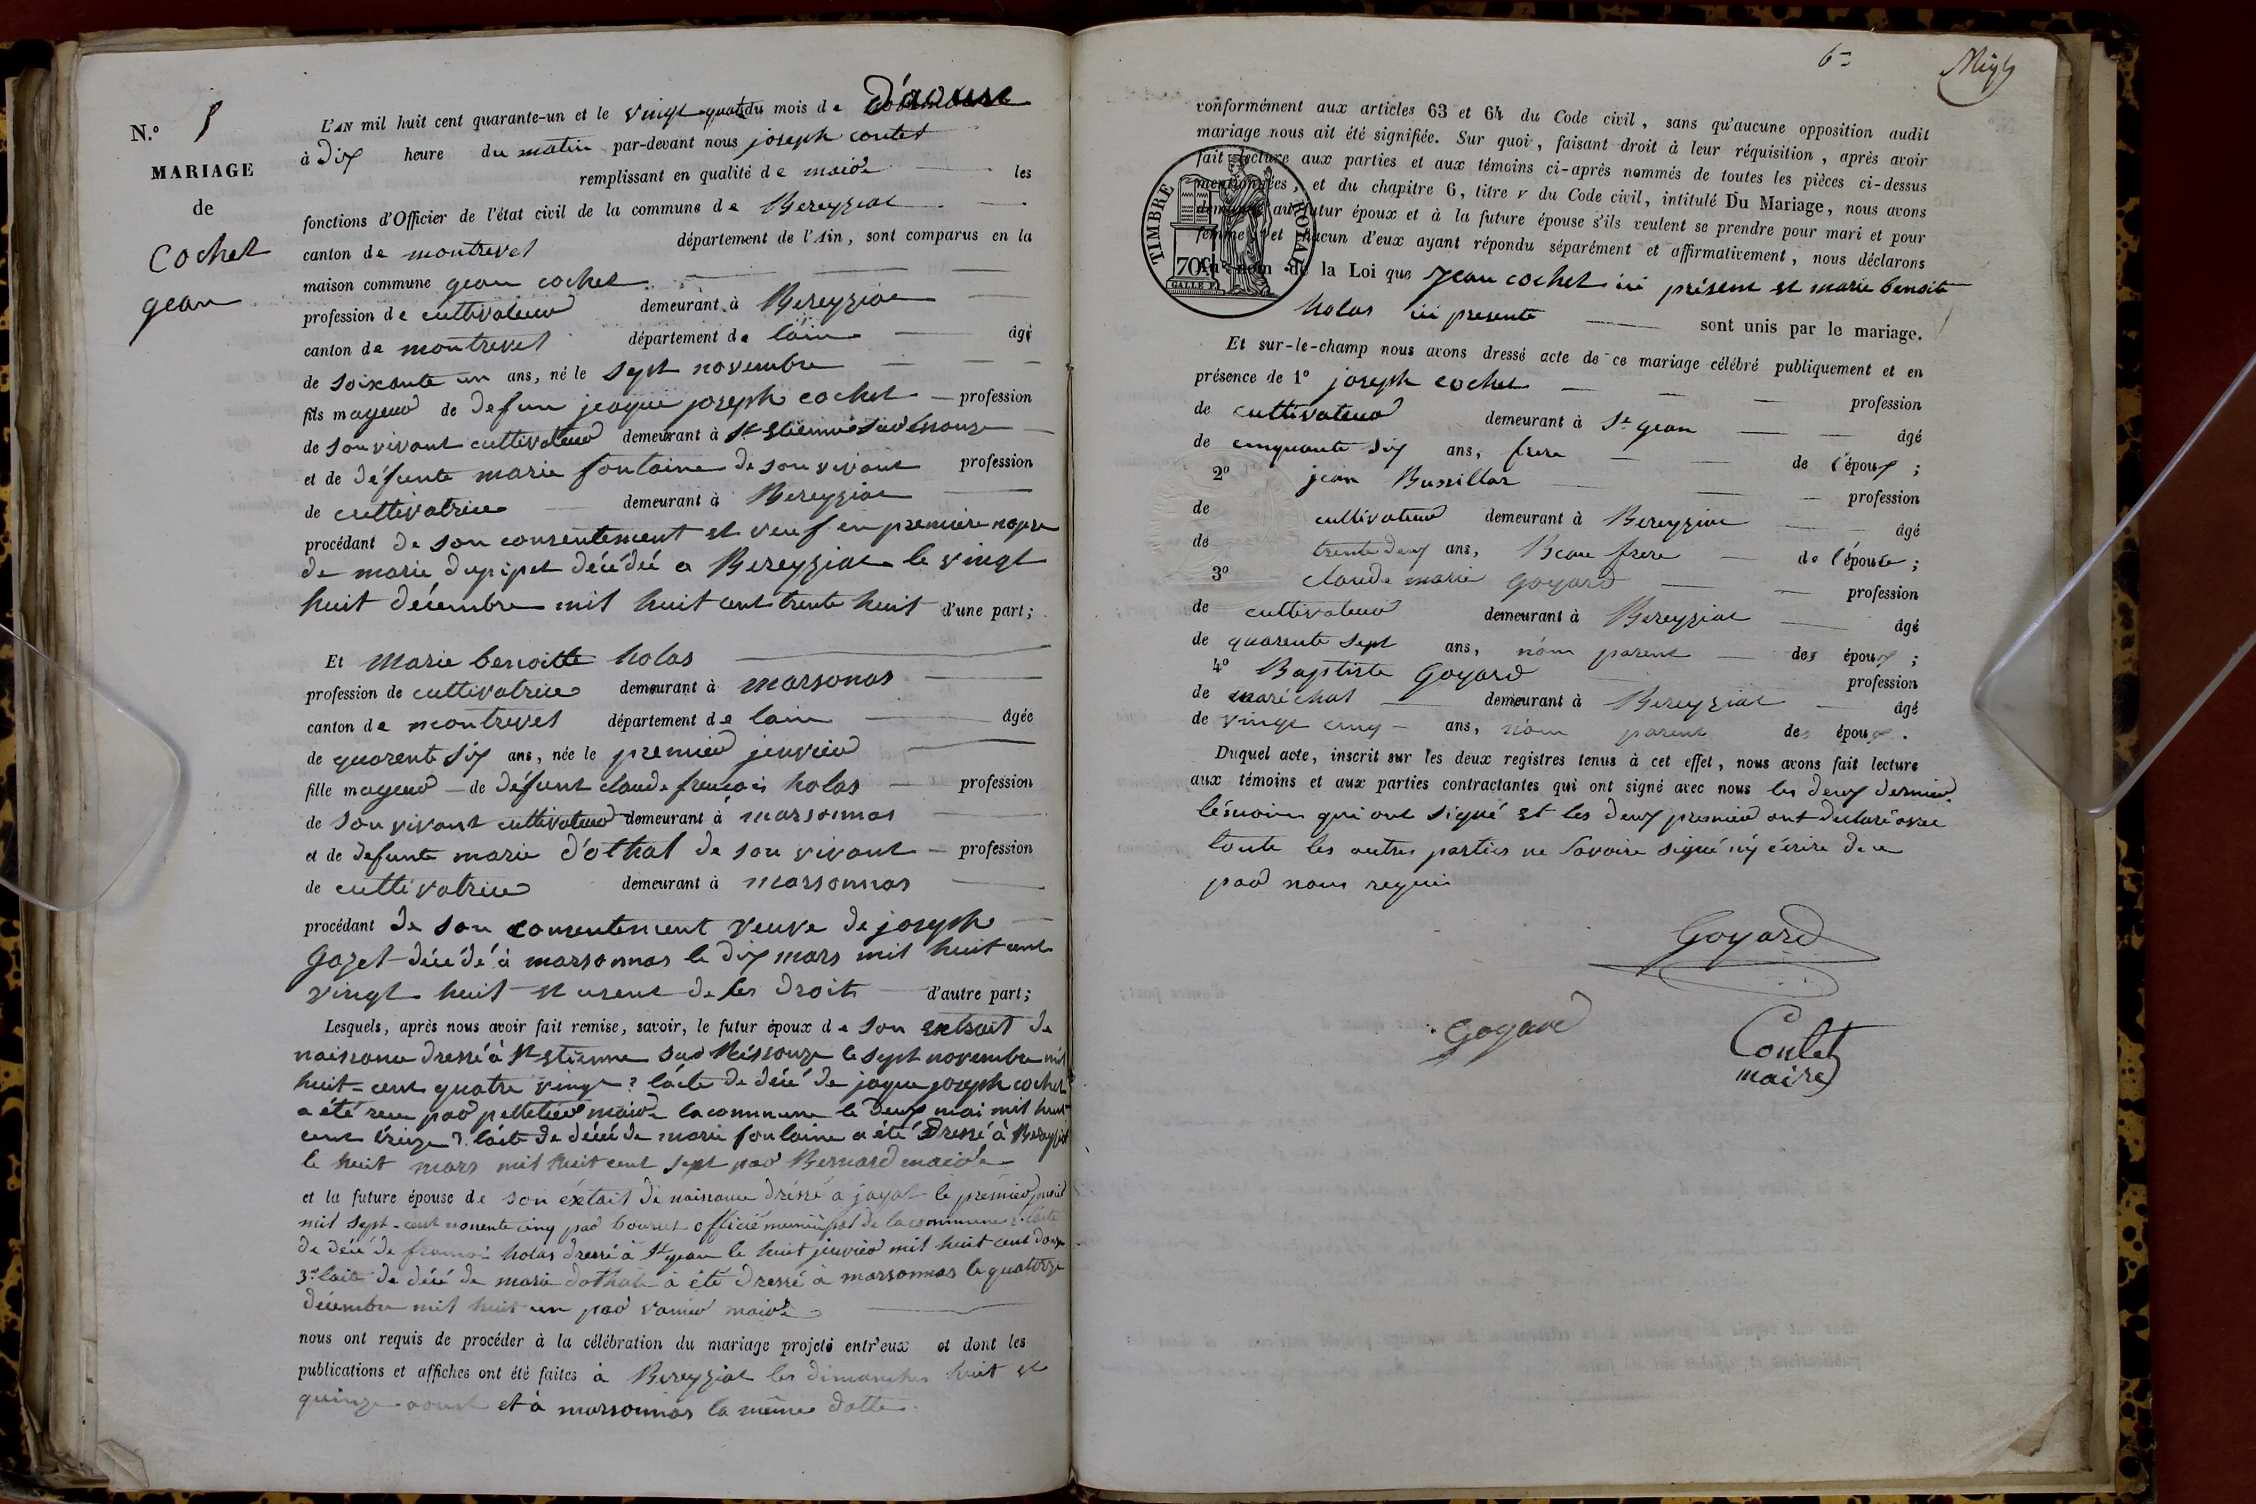 N.° 5
MARIAGE
de
Cochet
gean
L'AN mil huit cent quarante-un et le vingt quatre du mois de D'aoust
à dix heure du matin par-devant nous joseph contet
remplissant en qualité de maire les
fonctions d'Officier de l'état civil de la commune de Bereyziat
canton de montrevel département de l'Ain, sont comparus en la
maison commune gean cochet
profession de cultivateur demeurant à Bereyziat
canton de montrevel département de lain âgé
de soixante un ans, né le sept novembre
fils mageur de defun jeaque joseph cochet profession
de son vivant cultivateur demeurant à St Etienne
et de défunte marie fontaine de son vivant profession
de cultivatrice demeurant à Bereyziat
procédant de son consentement et veuf en premiere
de marie dupipet décédée a Bereyziat le vingt
huit décembre mil huit cent trente huit d'une part;
Et Marie benoitte holas
profession de cultivatrice demeurant à marsonas
canton de montrevel département de lain âgée
de quarente six ans, née le premier jenvier
fille mageur de défunt claude francois holas profession
de son vivant cultivateur demeurant à marsonnas
et de defunte marie d'othal de son vivant profession
de cultivatrice demeurant à marsonnas
procédant de son consentement veuve de joseph
gozet décédé à marsonnas le dix mars mil huit cent
vingt huit et usent de ses droit d'autre part;
Lesquels, après nous avoir fait remise, savoir, le futur époux de son extrait de
naissance dressé à St Etienne le sept novembre mil
huit-cent quatre vingt 2 l'acte de décé de jaque joseph cochet
a été par pelletier maire la commune le deux mai mil huit
cent treize 3. l'acte de décé de marie fontaine a été dressé à Bereyziat
le huit mars mil huit cent sept par Bernard maire
et la future épouse de son extait de naissance dréssé a jayat le premier janvier
mil sept-cent nonente cinq par officié municipal de la commune 2. l'acte
de décé de francois holas dressé à St gean le huit jenvier mil huit cent douze
3. l'acte de décé de marie dothal à été dressé à marsonnas le quatorze
décembre mil huit un par maire
nous ont requis de procéder à la célébration du mariage projeté entr'eux et dont les
publications et affiches ont été faites à Bereyziat les dimanches huit et
quinze aoust et à marsonnas la même datte
6
conformément aux articles 63 et 64 du Code civil, sans qu'aucune opposition audit
mariage nous ait été signifiée. Sur quoi, faisant droit à leur réquisition, après avoir
fait lecture aux parties et aux témoins ci-après nommés de toutes les pièces ci-dessus
mentionnées, et du chapitre 6, titre v du Code civil, intitulé Du Mariage, nous avons
demandé au futur époux et à la future épouse s'ils veulent se prendre pour mari et pour
femme; et chacun d'eux ayant répondu séparément et affirmativement, nous déclarons
au nom de la Loi que Jean cochet ici présent et marie benoite
holas ici presente sont unis par le mariage.
TIMBRE ROYAL
70c
Et sur-le-champ nous avons dressé acte de ce mariage célébré publiquement et en
présence de 1° joseph cochet profession
de cultivateur demeurant à St gean âgé
de cinquante six ans, frere de l'époux;
2° jean Bussillar profession
de cultivateur demeurant à Bereyziat âgé
de trente deux ans, Beau frere de l'épouse;
3° claude marie goyard profession
de cultivateur demeurant à Bereyziat âgé
de quarente sept ans, non parent des époux;
4° Baptiste goyard profession
de maréchal demeurant à Bereyziat âgé
de vingt cinq ans, non parent des époux.
Duquel acte, inscrit sur les deux registres tenus à cet effet, nous avons fait lecture
aux témoins et aux parties contractantes qui ont signé avec nous les deux dernier
témoins qui ont signé et les deux premier ont declaré avec
toute les autres parties ne savoire signé ny écrire de ce
par nous requis
Goyard
Goyard
Contet
maire